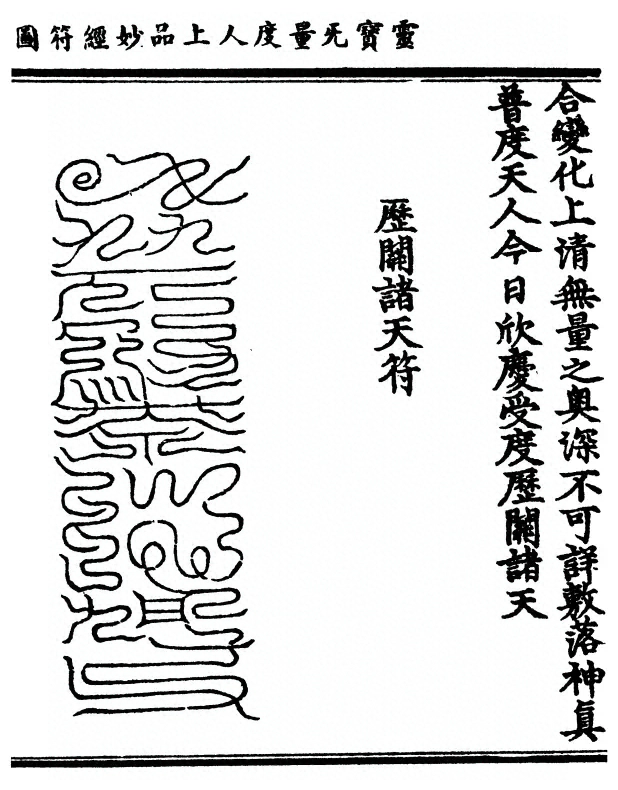 靈寶无量度人上品妙經符圖
合變化上清無量之奥深不可詳敷落神眞
普度天人今日欣慶受度歷關諸天
歷關諸天符